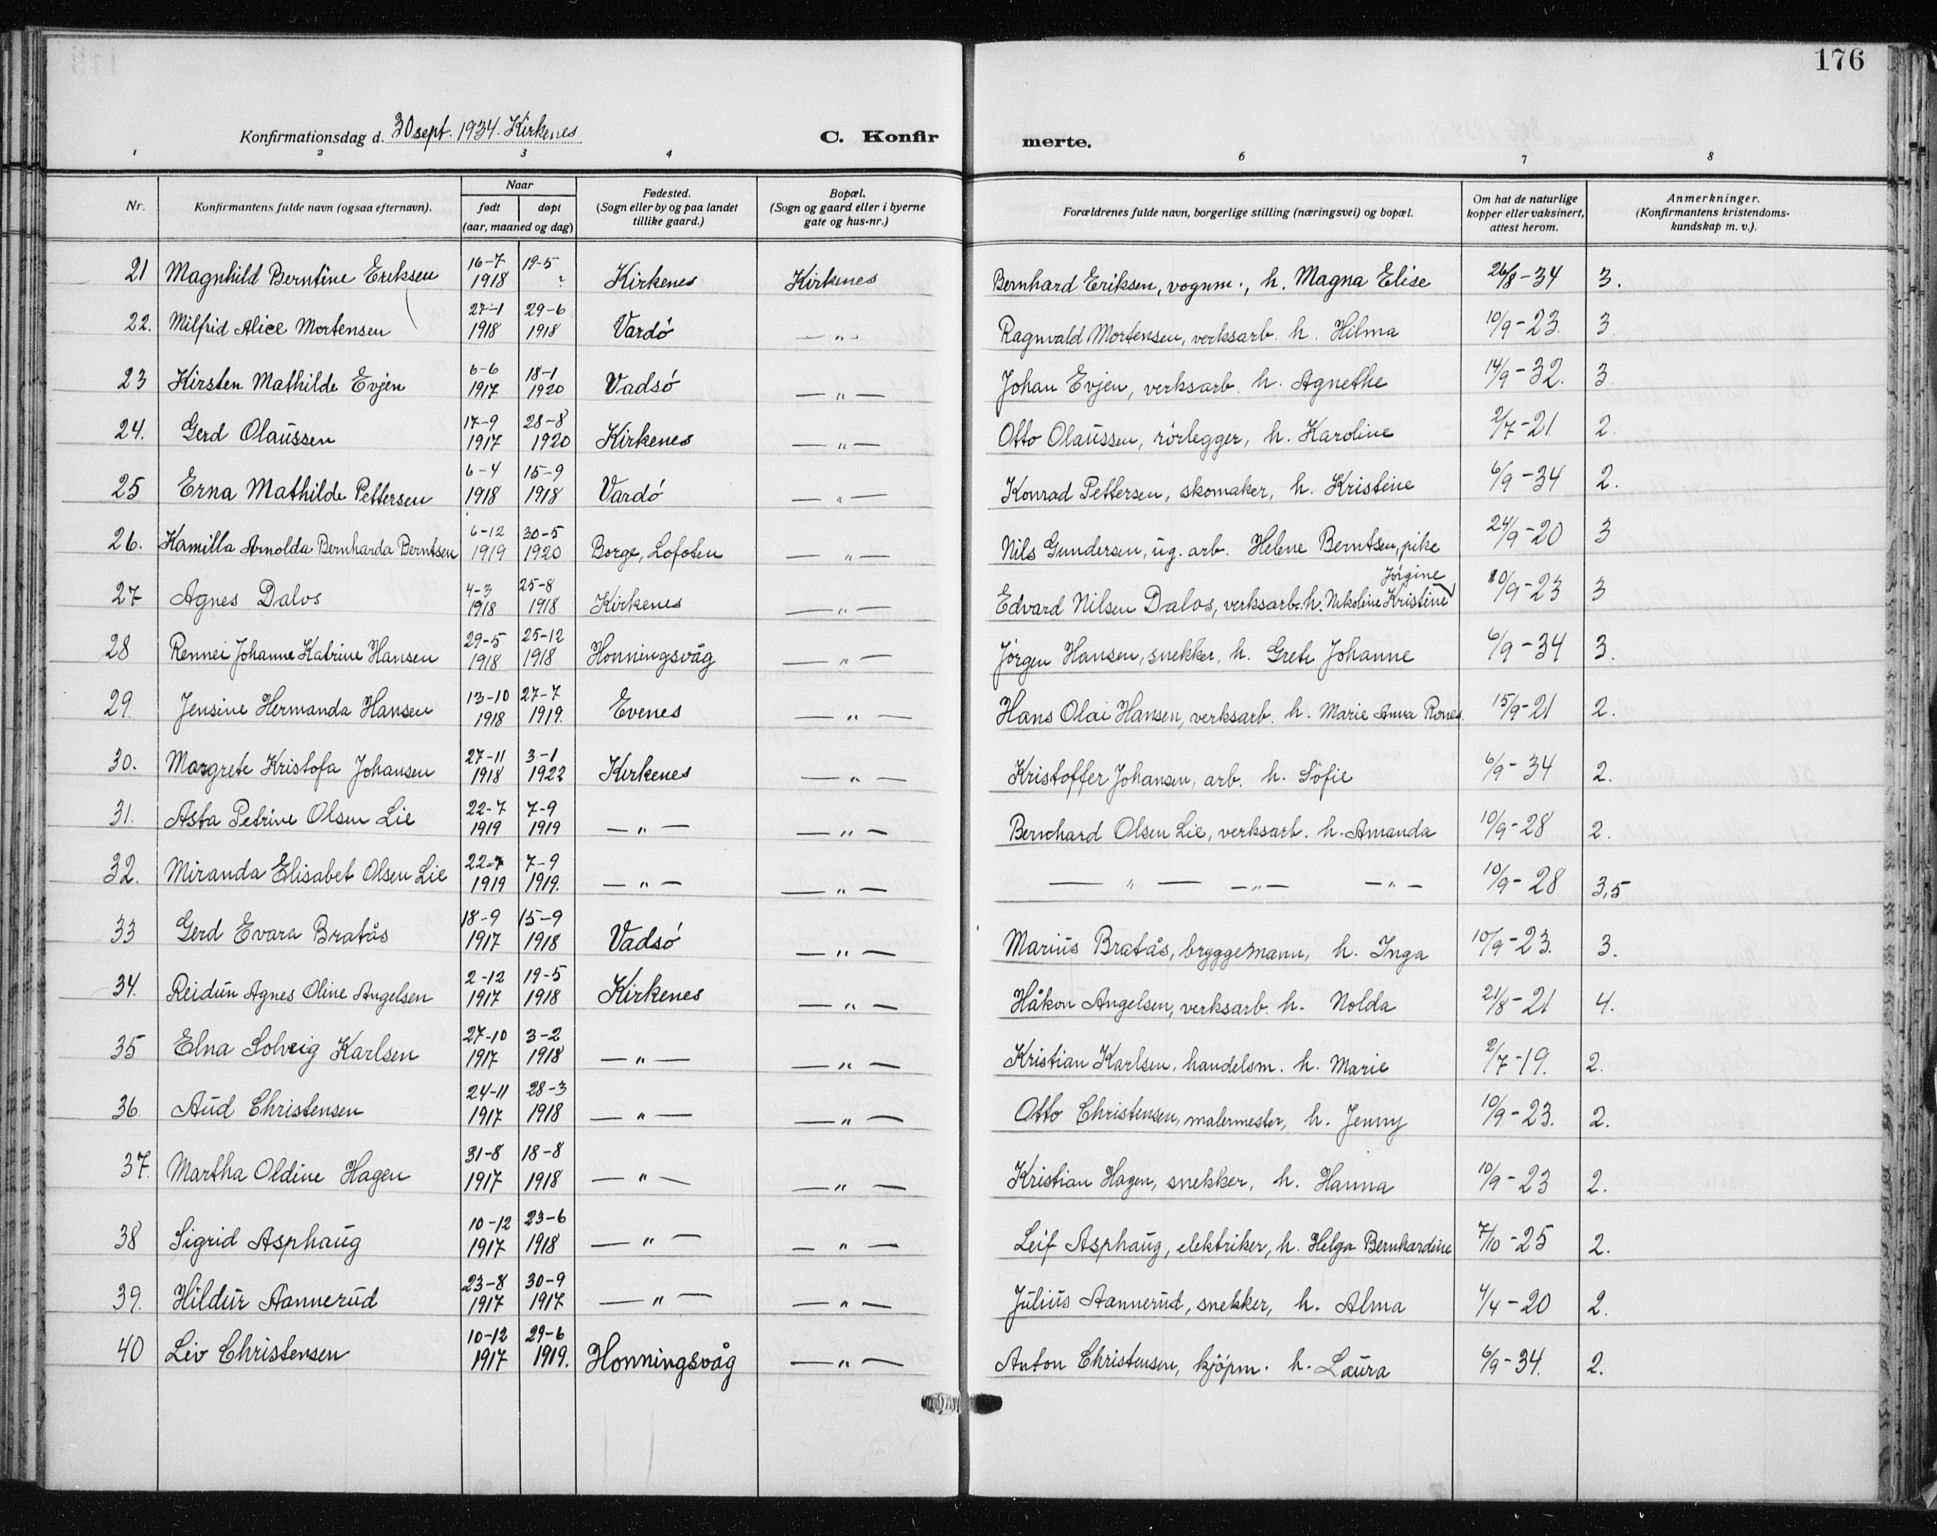 176
Konfirmationsdag d. 30 sept. 1934. Kirkenes C. Konfirmerte.
1 2 3 4 6 7 8
Nr. Konfirmantens fulde navn (ogsaa efternavn). Naar født døpt (aar, maaned og dag) Fødested. (Sogn eller by og paa landet tillike gaard.) Bopæl. (Sogn og gaard eller i byerne gate og hus-nr.) Forældrenes fulde navn, borgerlige stilling (næringsvei) og bopæl. Om hat de naturlige kopper eller vaksinert, attest herom. Anmerkninger. (Konfirmantens kristendoms- kundskap m. v.).
21 Magnhild Berntine Eriksen 16-7 1918 19-5 Kirkenes Kirkenes Bernhard Eriksen, vognm., h. Magna Elise 26/8-34 3.
22. Milfrid Alice Mortensen 27-1 1918 29-6 1918 Vardö —„— Ragnvald Mortensen, verksarb. h. Hilma 10/9-23. 3.
23 Kirsten Mathilde Evjen 6-6 1917 18-1 1920 Vadsö —„— Johan Evjen, verksarb. h. Agnethe 14/9-32. 3.
24. Gerd Olaussen 17-9 1917 28-8 1920 Kirkenes —„— Otto Olaussen, rörlegger, h. Karoline 2/7-21 2.
25 Erna Mathilde Pettersen 6-4 1918 15-9 1918 Vardö —„— Konrad Pettersen, skomaker, h. Kristine 6/9-34 2.
26. Kamilla Arnolda Bernharda Berntsen 6-12 1919 30-5 1920 Borge, Lofoten —„— Nils Gundersen, ug. arb. Helene Berntsen, pike 24/9-20 3
27 Agnes Dalos 4-3 1918 25-8 1918 Kirkenes —„— Edvard Nilsen Dalos, verksarb. h. Nikoline Kristine Jörgine 10/9-23 3
28 Rennei Johanne Katrine Hansen 29-5 1918 25-12 1918 Honningsvåg —„— Jörgen Hansen, snekker, h. Grete Johanne 6/9-34 3.
29. Jensine Hermanda Hansen 13-10 1918 27-7 1919. Evenes —„— Hans Olai Hansen, verksarb. h. Marie Anna Rones. 15/9-21 2.
30. Margrete Kristofa Johansen 27-11 1918 3-1 1922 Kirkenes —„— Kristoffer Johansen, arb. h. Sofie 6/9-34 2.
31. Asta Petrine Olsen Lie 22-7 1919 7-9 1919 —„— —„— Bernhard Olsen Lie, verksarb. h. Amanda 10/9-28 2.
32. Miranda Elisabet Olsen Lie 22-7 1919 7-9 1919. —„— —„— —„— —„— —„— 10/9-28 3,5
33 Gerd Evara Bratås 18-9 1917 15-9 1918 Vadsö —„— Marius Bratås, bryggemann, h. Inga 10/9-23. 3.
34. Reidun Agnes Oline Angelsen 2-12 1917 19-5 1918 Kirkenes —„— Håkon Angelsen, verksarb. h. Nolda 21/8-21 4.
35 Elna Solveig Karlsen 27-10 1917 3-2 1918 —„— —„— Kristian Karlsen, handelsm. h. Marie 2/7-19. 2.
36. Aud Christensen 24-11 1917 28-3 1918 —„— —„— Otto Christensen, malermester, h. Jenny 10/9-23. 2.
37. Martha Oldine Hagen 31-8 1917 18-8 1918 —„— —„— Kristian Hagen, snekker, h. Hanna 10/9-23 2.
38 Sigrid Asphaug 10-12 1917 23-6 1918 —„— —„— Leif Asphaug, elektriker, h. Helga Bernhardine 7/10-25 2.
39. Hildur Aannerud 23-8 1917 30-9 1917 —„— —„— Julius Aannerud, snekker, h. Alma 4/4-20 2.
40 Liv Christensen 10-12 1917 29-6 1919. Honningsvåg —„— Anton Christensen, kjöpm. h. Laura 6/9-34. 2.